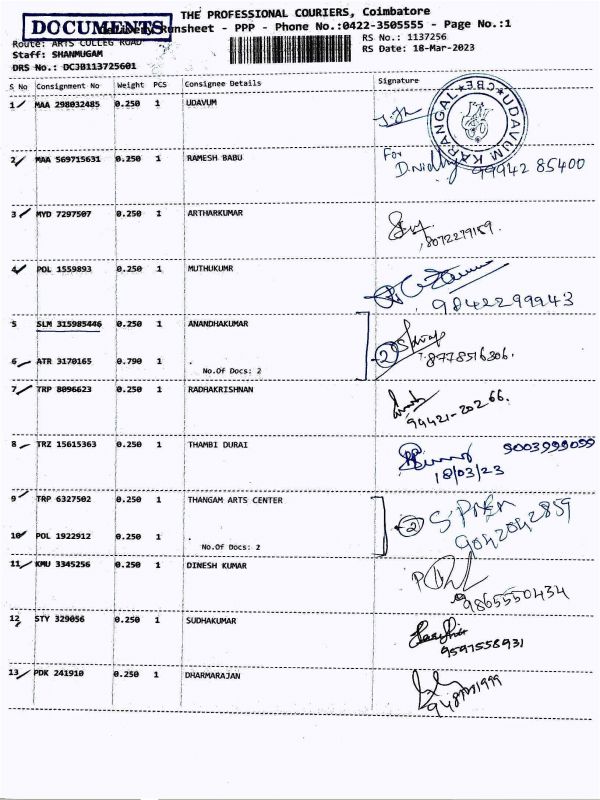 THE PROFESSIONAL COURIERS, Coimbatore
DOCUMENTS
Delivery Runsheet - PPP - Phone No.:0422-3505555 - Page No.:1
Route: ARTS COLLEG ROAD
RS No.: 1137256
Staff: SHANMUGAM
RS Date: 18-Mar-2023
DRS No.: DCJB113725601
S No Consignment No Weight PCS Consignee Details Signature
1 MAA 298032485 0.250 1 UDAVUM
UDAVUM KARANGAL CBE
2 MAA 569715631 0.250 1 RAMESH BABU
For
99942 85400
3 MYD 7297507 0.250 1 ARTHARKUMAR
8072279159.
4 POL 1559893 0.250 1 MUTHUKUMR
9842299943
5 SLM 315985446 0.250 1 ANANDHAKUMAR
2
8778516306.
6 ATR 3170165 0.790 1 .
No.Of Docs: 2
7 TRP 8096623 0.250 1 RADHAKRISHNAN
99421-20266.
8 TRZ 15615363 0.250 1 THAMBI DURAI
9003999099
18/03/23
9 TRP 6327502 0.250 1 THANGAM ARTS CENTER
2
9042042859
10 POL 1922912 0.250 1 .
No.Of Docs: 2
11 KMU 3345256 0.250 1 DINESH KUMAR
9865550434
12 STY 329056 0.250 1 SUDHAKUMAR
9597558931
13 PDK 241910 0.250 1 DHARMARAJAN